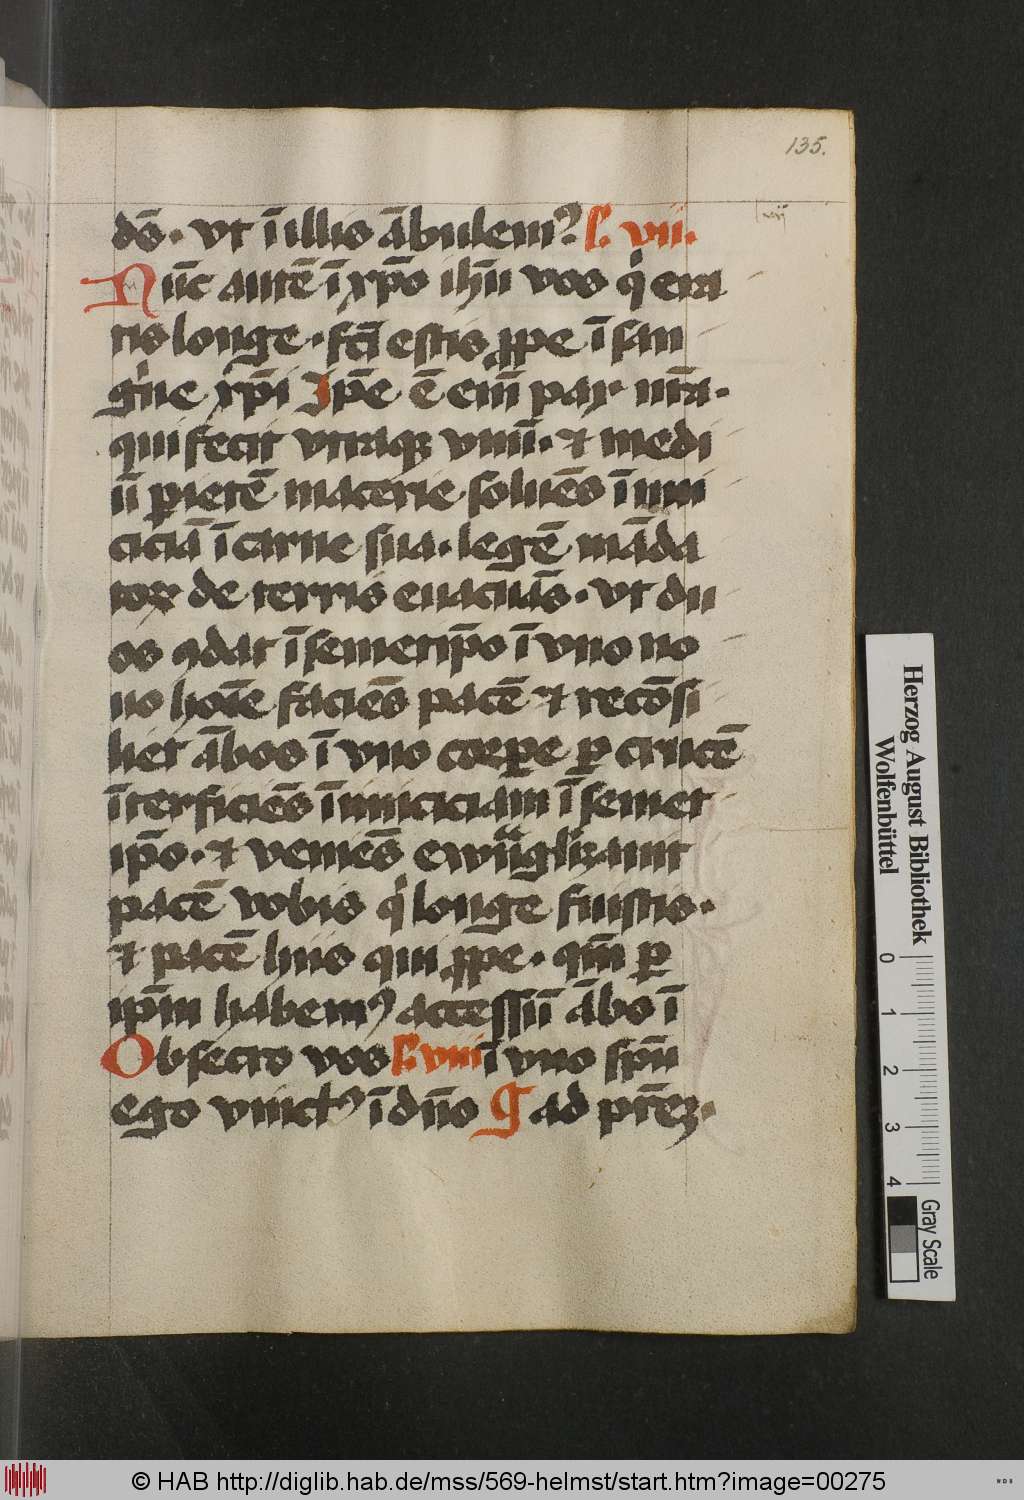 135.
vij
ds̄. vt ī illis ābulemꝰ. l. vii.
Nūc autē ī xp̄o ihū vos qͥ era
tis longe. fc̄i estis ꝓpe ī san
gͥne xp̄i Ip̄e ē eni̅ pax nr̄a.
qui fecit vtraqꝫ vnū. ⁊ medi
ū pietē macerie soluēs īimi
ciciā ī carne sua. legē māda
toꝝ de terris euacuās. vt du
os ꝯdat ī semetip̄o ī vno no
uo hoīe faciēs pacē ⁊ recōsi
liet ābos ī vno corpe ꝑ crucē
īterficiēs īimiciciam ī semet
ip̄o. ⁊ veniēs ewāglizauit
pacē vobis qͥ longe fuistis.
⁊ pacē hiis qui ꝓpe. qm̄ ꝑ
ip̄m habemꝰ accessū ābo ī
Obsecro vos l. viii ī vno spū
ego vinctꝰ ī dn̄o ¶ ad pr̄eꝫ.
Herzog August Bibliothek
Wolfenbüttel
0
1
2
3
4
Gray Scale
© HAB http://diglib.hab.de/mss/569-helmst/start.htm?image=00275